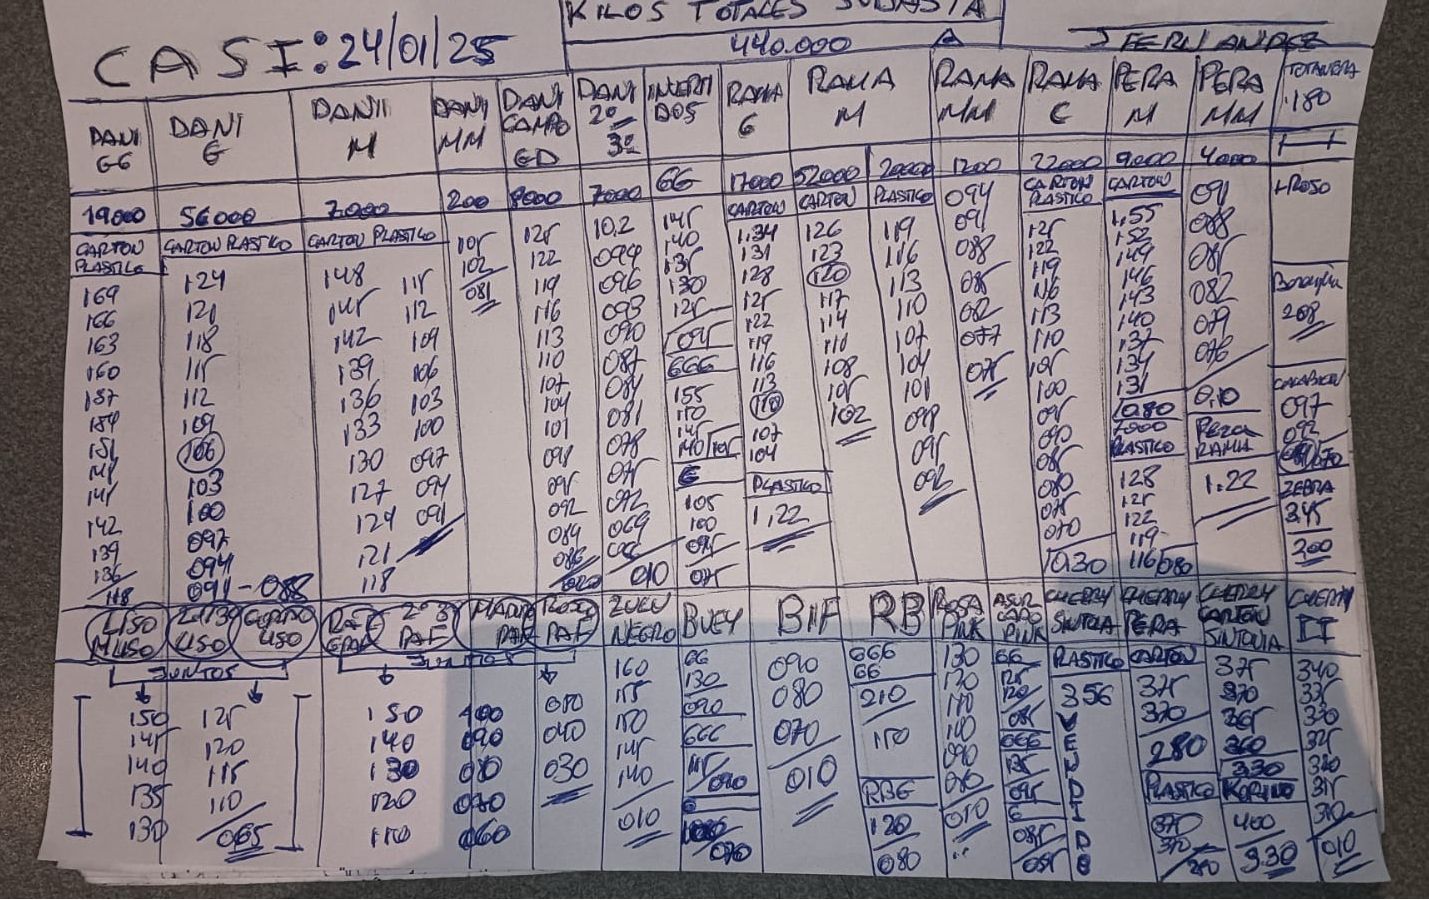 KILOS TOTALES SUBASTA
440.000
CASI: 24/01/25
J FERNANDEZ
DANI GG
DANI G
DANI M
DANI MM
DANI CAMPO
DANI 2º 3º
INVERTIDOS
RAMA G
RAMA M
RAMA MM
RAMA C
PERA M
PERA MM
180
19000
56000
7000
200
8000
7000
GG
17000
52000
20000
1200
22000
9000
4000
CARTON PLASTICO
CARTON PLASTICO
CARTON PLASTICO
CARTON
CARTON
PLASTICO
CARTON PLASTICO
CARTON
169
166
163
160
142
139
136
118
124
121
118
115
112
109
106
103
100
097
094
091-088
148
145
142
139
136
133
130
127
124
121
118
115
112
109
106
103
100
097
094
091
105
102
081
125
122
119
116
113
110
107
104
101
098
095
092
089
086
10.2
094
096
093
090
087
084
081
078
075
069
010
145
140
135
130
125
095
GGG
155
150
145
140/105
G
105
100
095
075
1.34
131
128
125
122
119
116
113
110
107
104
PLASTICO
1,22
126
123
120
117
114
111
108
105
102
119
116
113
110
107
104
101
098
095
092
094
091
088
085
082
077
075
125
122
119
116
113
110
105
100
095
090
085
080
075
070
030
1,55
152
149
146
143
140
137
134
131
080
PLASTICO
128
125
122
119
116/080
091
088
085
082
079
076
0,10
PERA RAMA
1.22
208
097
092
ZEBRA
345
200
LISO
M LISO
LISO
LISO
2º 3º
PAF
PAF
ROSA PAF
ZULU NEGRO
BUEY
BIF
RB
ROSA PINK
PINK
CHERRY SINTOIA
CHERRY PERA
CHERRY CARTON SINTONIA
CHERRY II
JUNTOS
JUNTOS
150
145
140
135
130
125
120
115
110
065
150
140
130
120
110
100
090
080
070
060
050
040
030
160
155
150
145
140
010
GG
130
090
GGG
115/090
G
070
090
080
070
010
GGG
GG
210
150
RBG
120
080
130
120
110
100
090
080
010
GG
125
120
085
GGG
135
095
G
085
PLASTICO
356
CARTON
375
370
280
PLASTICO
370
375
370
365
360
330
400
3.30
340
335
330
325
320
315
310
010